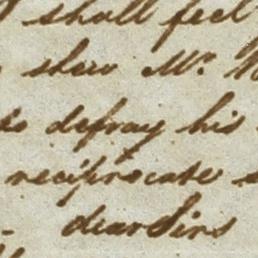 I shall feel
shew Mr.
to defray his
reciprocate
dear Sirs